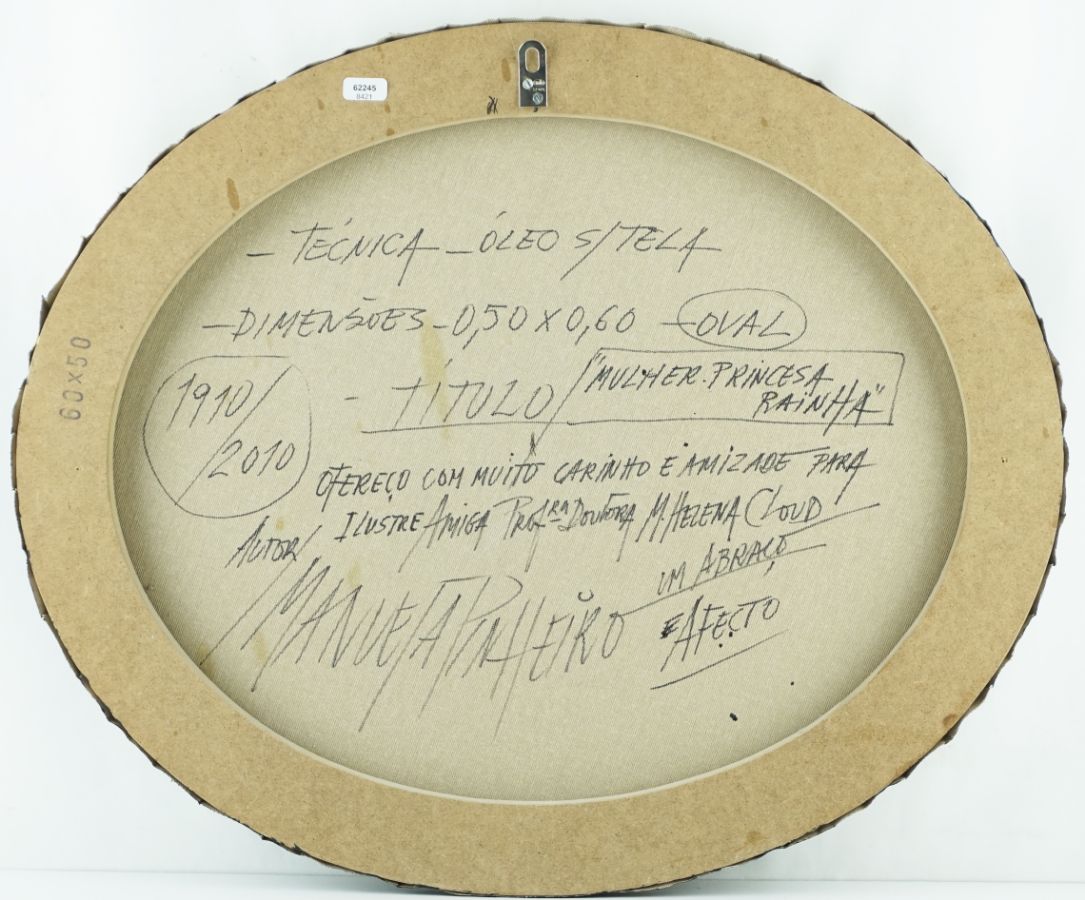 62245
8421
60x50
- TÉCNICA - ÓLEO S/TELA
- DIMENSÕES - 0,50 X 0,60 - OVAL
1910/
/2010
- TÍTULO / "MULHER. PRINCESA
RAINHA"
OFEREÇO COM MUITO CARINHO E AMIZADE PARA
ILUSTRE AMIGA PROFRA DOUTORA M. HELENA CLOUD
UM ABRAÇO
E AFECTO
AUTOR/
MANUEL A PINHEIRO